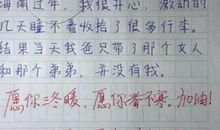 海南过年，我很开心，激动的
几天睡不着收拾了很多行李。
结果当天我爸只带了那个女人
和那个弟弟，并没有我。
愿你三冬暖，愿你春不寒。加油！